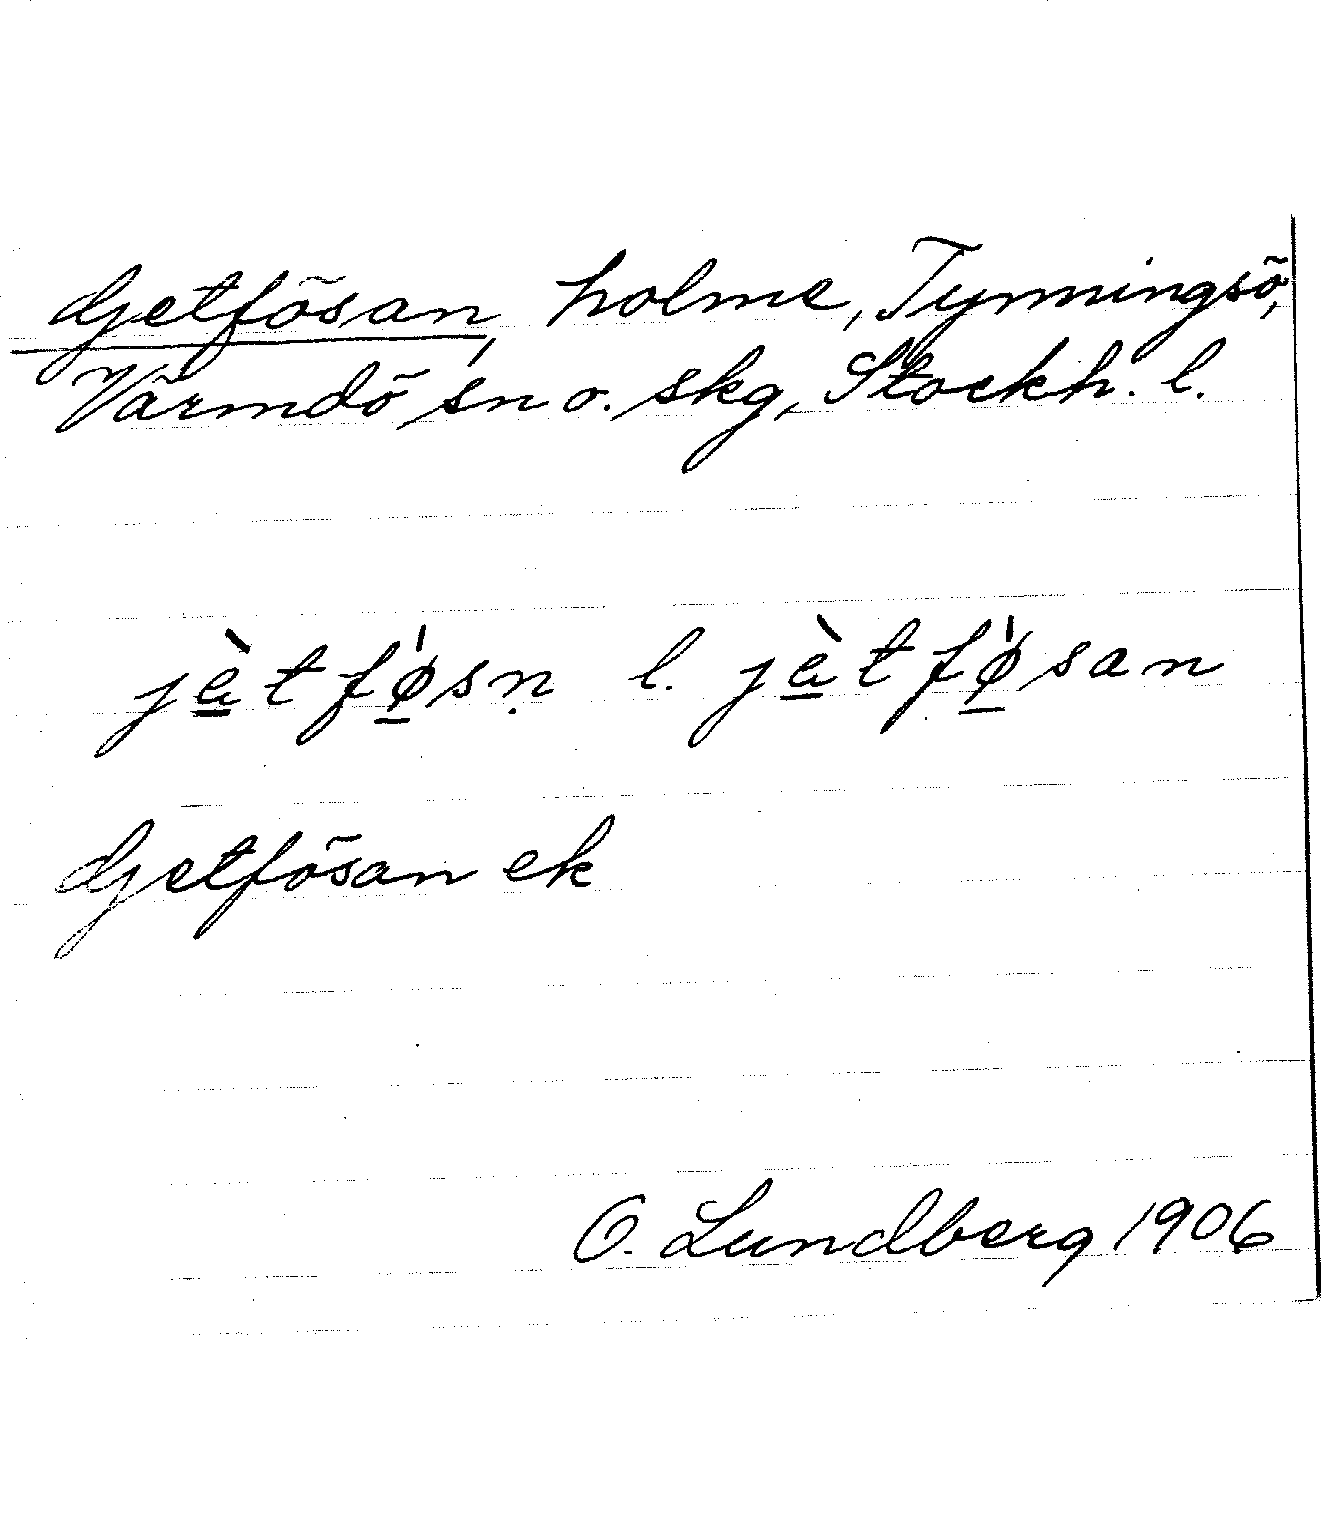 Getfösan, holme, Tynningsö,
Värmdö sn o. skg, Stockh. l.
jèt fǿsṇ l. jèt fǿsan
Getfösan ek
O. Lundberg 1906